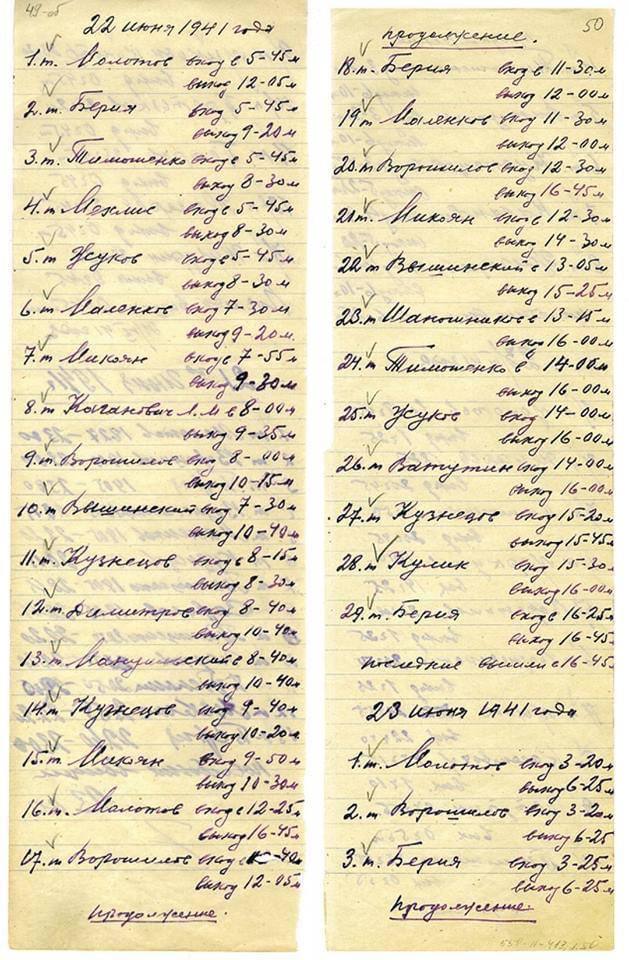 49-об
22 июня 1941 года
1. т. Молотов вход в 5-45м
выход 12-05м
2. т. Берия вход 5-45м
выход 9-20м
3. т. Тимошенко вход в 5-45м
выход 8-30м
4. т. Мехлис вход в 5-45м
выход 8-30м
5. т. Жуков вход в 5-45м
выход 8-30м
6. т. Маленков вход 7-30м
выход 9-20м.
7. т. Микоян вход в 7-55м
выход 9-30м
8. т. Каганович Л.М в 8-00м
выход 9-35м
9. т. Ворошилов вход 8-00м
выход 10-15м
10. т. Вышинский вход 7-30м
выход 10-40м
11. т. Кузнецов вход в 8-15м
выход 8-30м
12. т. Димитров вход 8-40м
выход 10-40м
13. т. Мануильский в 8-40м
выход 10-40м
14. т. Кузнецов вход 9-40м
выход 10-20м
15. т. Микоян вход 9-50м
выход 10-30м
16. т. Молотов вход в 12-25м
выход 16-45м
17. т. Ворошилов вход в 40м
выход 12-05м
продолжение.
50
продолжение.
18. т. Берия вход в 11-30м
выход 12-00м
19 т Маленков вход 11-30м
выход 12-00м
20. т Ворошилов вход 12-30м
выход 16-45м
21 т. Микоян вход в 12-30м
выход 14-30м
22. т Вышинский в 13-05м
выход 15-25м
23. т Шапошников в 13-15м
выход 16-00м
24. т Тимошенко в 14-00м
выход 16-00м
25. т Жуков вход 14-00м
выход 16-00м
26. т Ватутин вход 14-00м
выход 16-00м
27. т Кузнецов вход 15-20м
выход 15-45м
28. т Кулик вход 15-30м
выход 16-00м
29. т. Берия вход в 16-25м
выход 16-45м
последние вышли в 16-45м
23 июня 1941 года
1. т. Молотов вход 3-20м
выход 6-25м
2. т. Ворошилов вход 3-20м
выход 6-25
3. т. Берия вход 3-25м
выход 6-25м
продолжение.